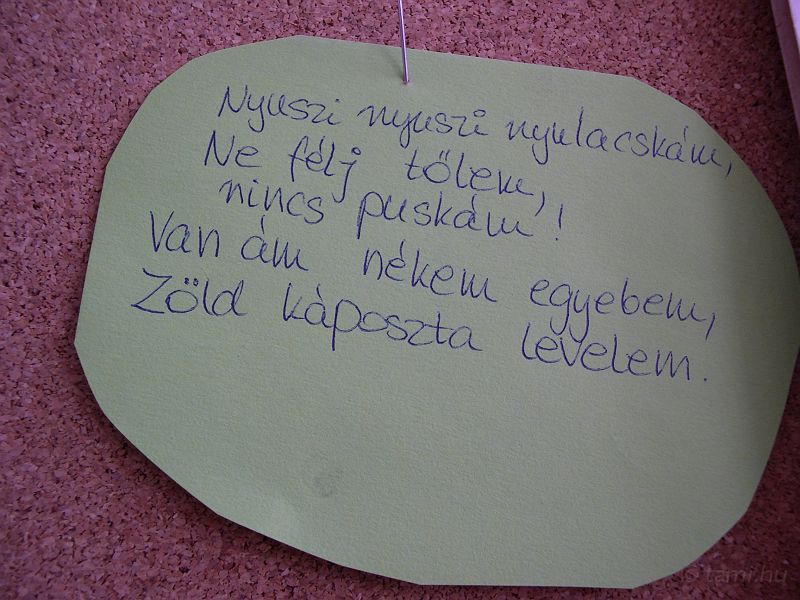 Nyuszi nyuszi nyulacskám,
Ne félj tőlem,
nincs puskám!
Van ám nékem egyebem,
Zöld káposzta levelem.
© tami.hu